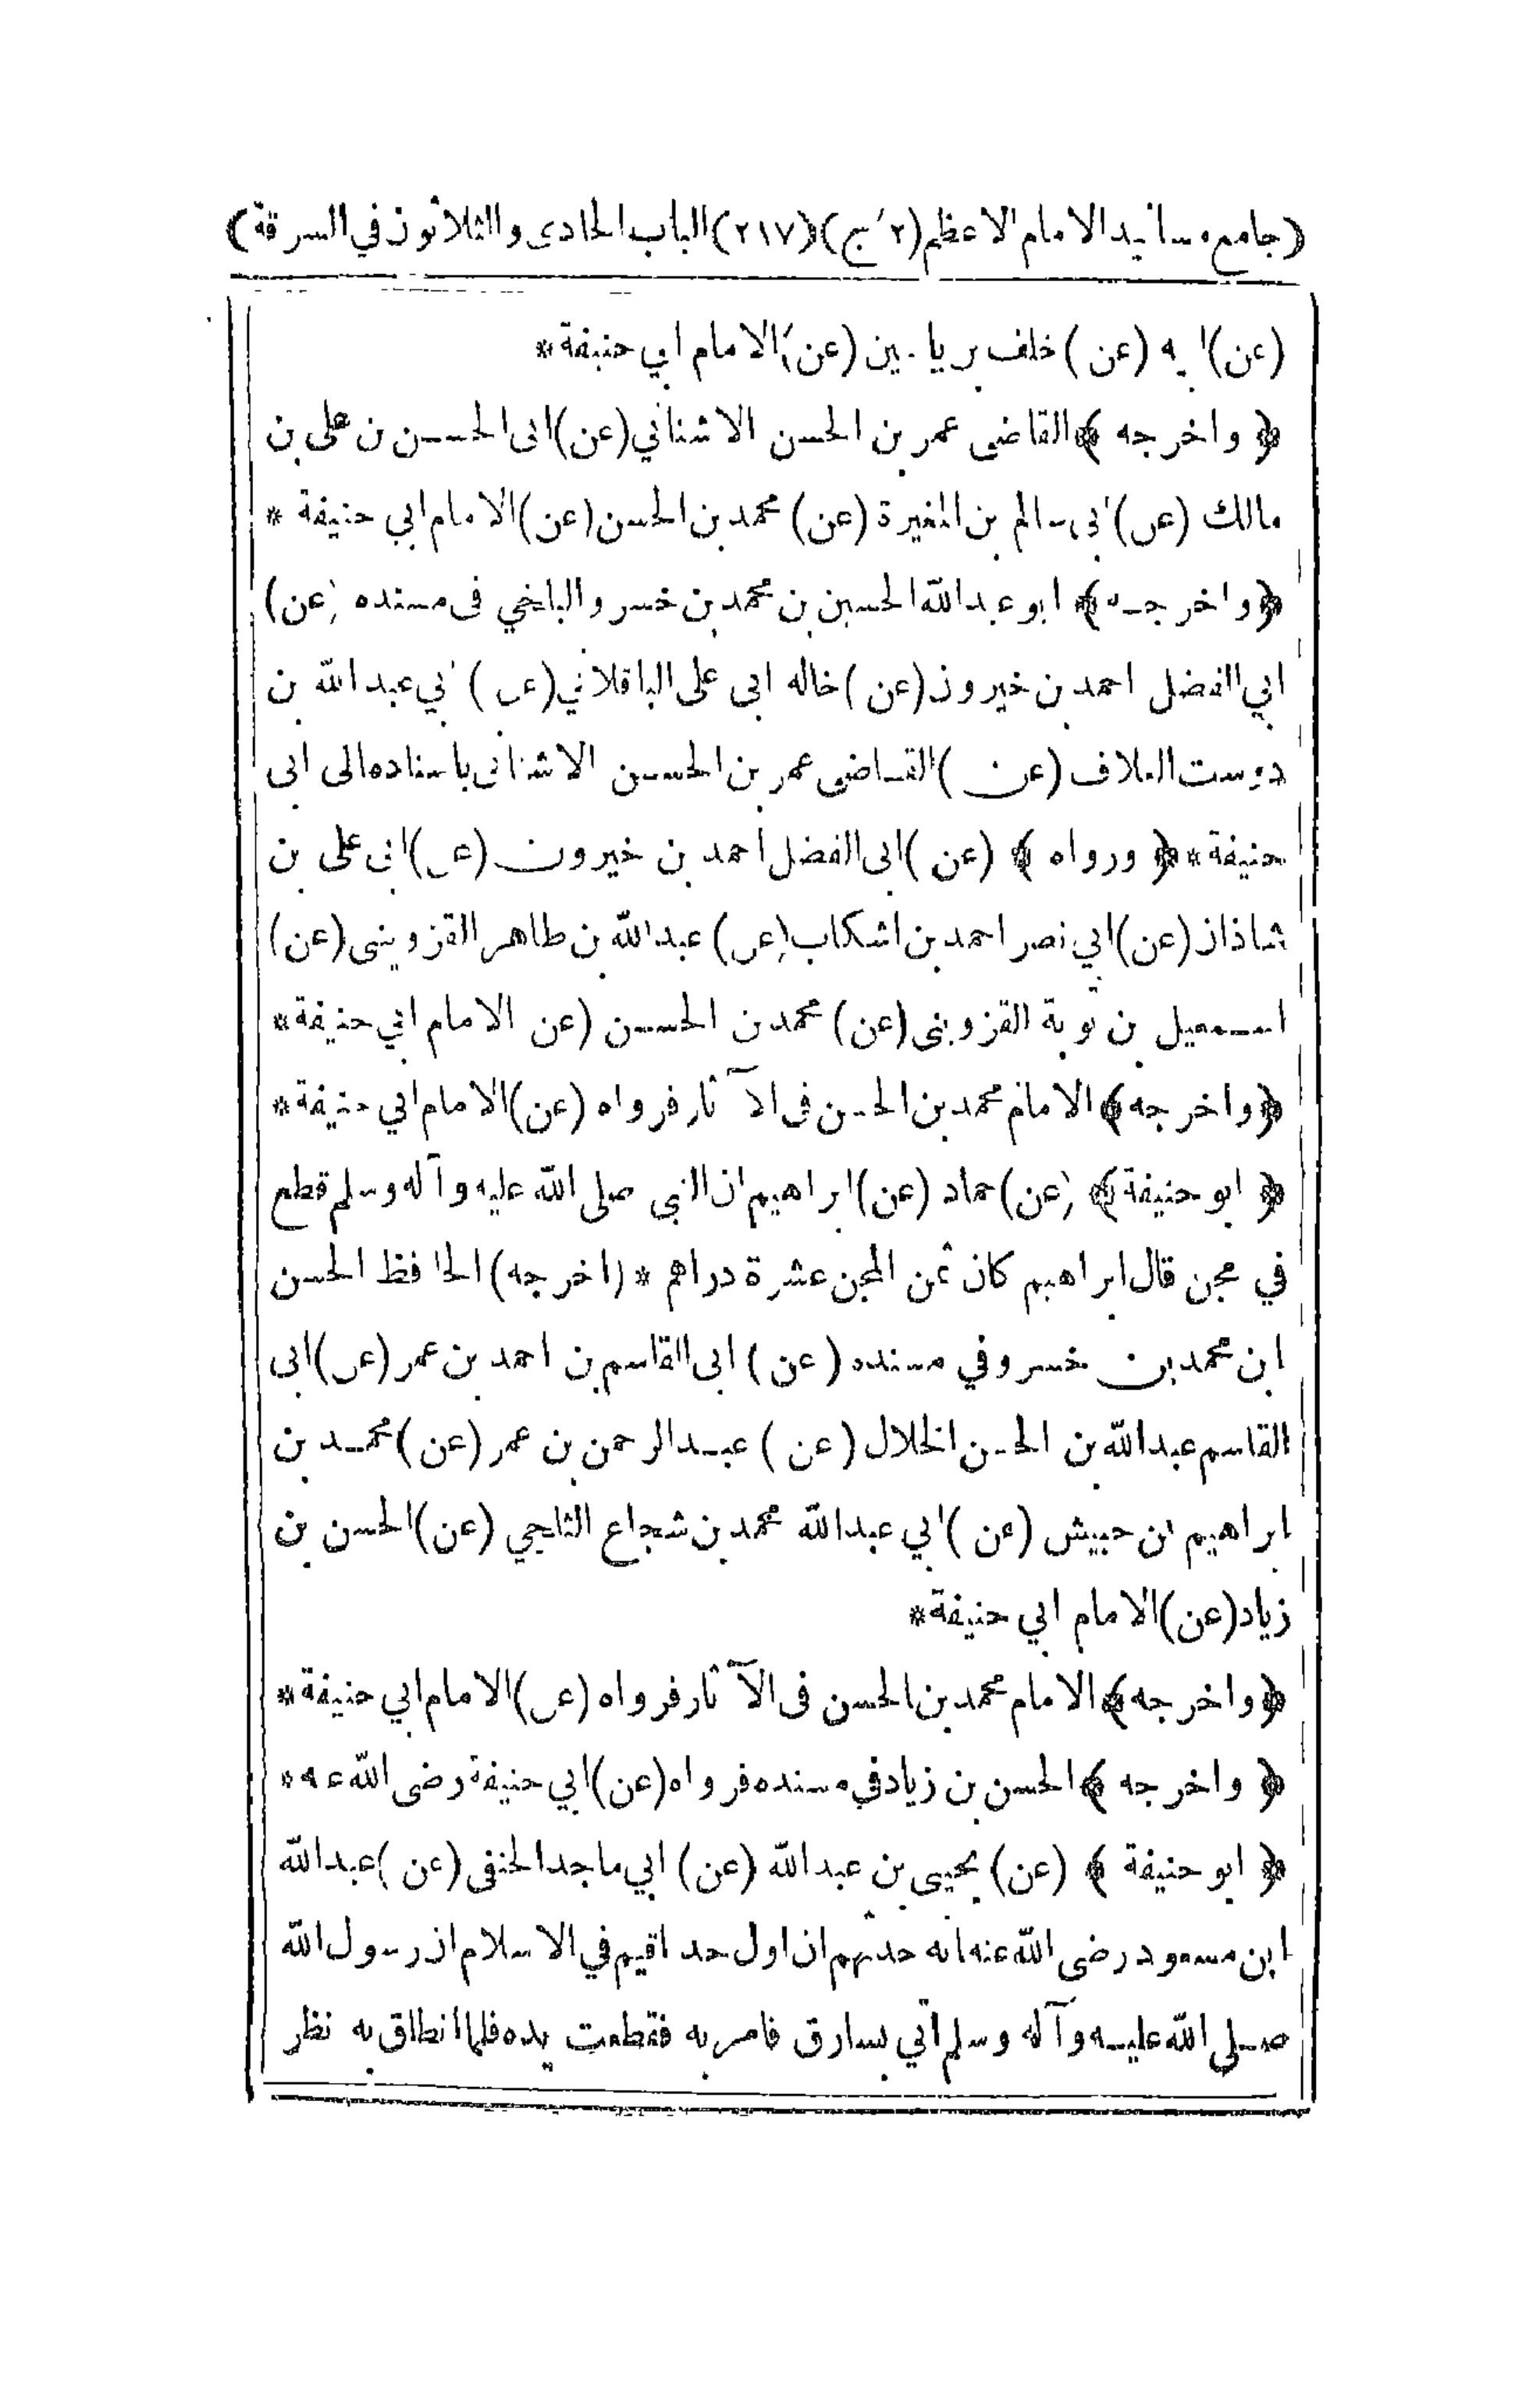 (جامع مسانيد الامام الاعظم (٢ ج) (٢١٧) الباب الحادى والثلاثون في السرقة)
(عن) ابيه (عن) خلف بن ياسين (عن) الامام ابي حنيفة *
﴿ واخرجه ﴾ القاضى عمر بن الحسن الاشناني (عن) ابى الحسن بن على بن
مالك (عن) ابى سالم بن المغيرة (عن) محمد بن الحسن (عن) الامام ابي حنيفة *
﴿ واخرجه ﴾ ابو عبد الله الحسين بن محمد بن خسرو البلخي فى مسنده (عن)
ابي الفضل احمد بن خيرون (عن) خاله ابى على الباقلاني (عن) ابي عبد الله بن
دوست العلاف (عن) القاضى عمر بن الحسن الاشنانى باسناده الى ابى
حنيفة * ﴿ ورواه ﴾ (عن) ابى الفضل احمد بن خيرون (عن) ابى على بن
شاذان (عن) ابي نصر احمد بن اشكاب (عن) عبد الله بن طاهر القزوينى (عن)
اسمعيل بن توبة القزوينى (عن) محمد بن الحسن (عن الامام ابي حنيفة *
﴿ واخرجه ﴾ الامام محمد بن الحسن فى الآثار فرواه (عن) الامام ابي حنيفة *
﴿ ابو حنيفة ﴾ (عن) حماد (عن) ابراهيم ان النبى صلى الله عليه وآله وسلم قطع
في مجن قال ابراهيم كان ثمن المجن عشرة دراهم * (اخرجه) الحافظ الحسن
ابن محمد بن خسرو في مسنده (عن) ابى القاسم بن احمد بن عمر (عن) ابى
القاسم عبد الله بن الحسن الخلال (عن) عبد الرحمن بن عمر (عن) محمد بن
ابراهيم بن حبيش (عن) ابي عبد الله محمد بن شجاع الثلجي (عن) الحسن بن
زياد (عن) الامام ابي حنيفة *
﴿ واخرجه ﴾ الامام محمد بن الحسن فى الآثار فرواه (عن) الامام ابي حنيفة *
﴿ واخرجه ﴾ الحسن بن زياد في مسنده فرواه (عن) ابي حنيفة رضى الله عنه *
﴿ ابو حنيفة ﴾ (عن) يحيى بن عبد الله (عن) ابي ماجد الحنفى (عن) عبد الله
ابن مسعود رضى الله عنه انه حدثهم ان اول حد اقيم في الاسلام ان رسول الله
صلى الله عليه وآله وسلم اتي بسارق فامر به فقطعت يده فلما انطلق به نظر